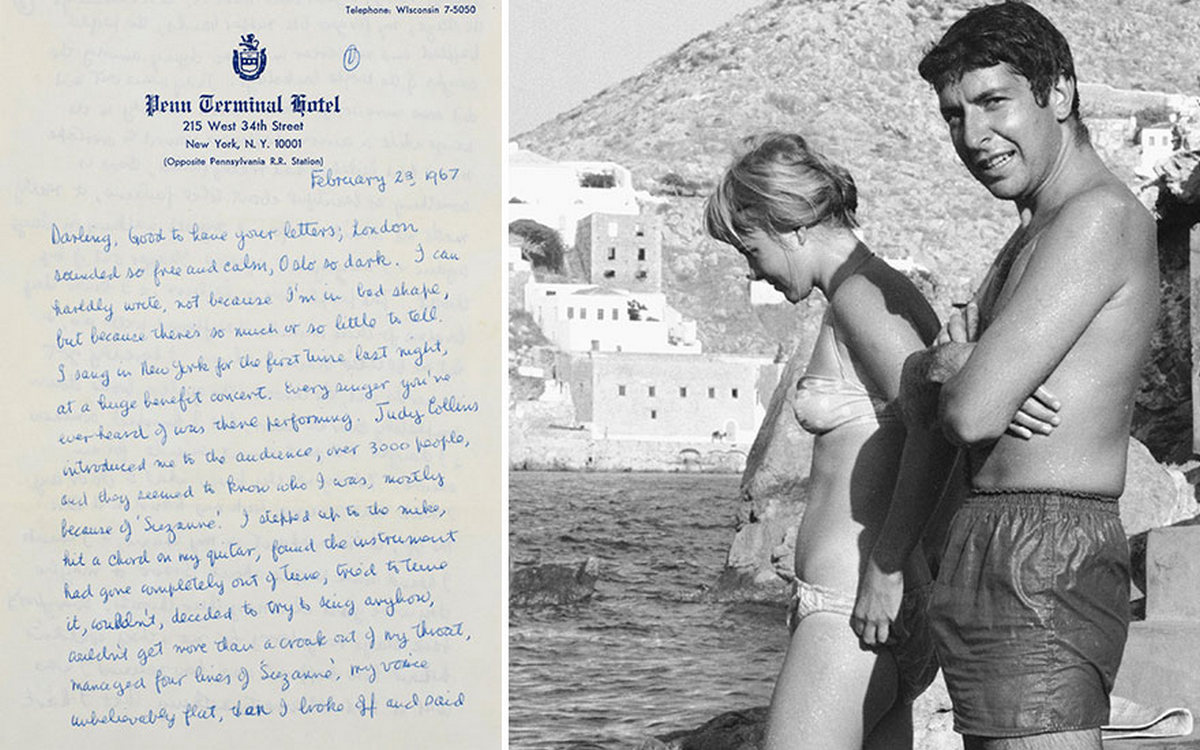 Telephone: WIsconsin 7-5050
Penn Terminal Hotel
215 West 34th Street
New York, N. Y. 10001
(Opposite Pennsylvania R.R. Station)
February 23, 1967
Darling, Good to have your letters; London
sounded so free and calm, Oslo so dark. I can
hardly write, not because I'm in bad shape,
but because there's so much or so little to tell.
I sang in New York for the first time last night,
at a huge benefit concert. Every singer you've
ever heard of was there performing. Judy Collins
introduced me to the audience, over 3000 people,
and they seemed to know who I was, mostly
because of 'Suzanne'. I stepped up to the mike,
hit a chord on my guitar, found the instrument
had gone completely out of tune, tried to tune
it, couldn't, decided to try to sing anyhow,
couldn't get more than a croak out of my throat,
managed four lines of 'Suzanne', my voice
unbelievably flat, then I broke off and said